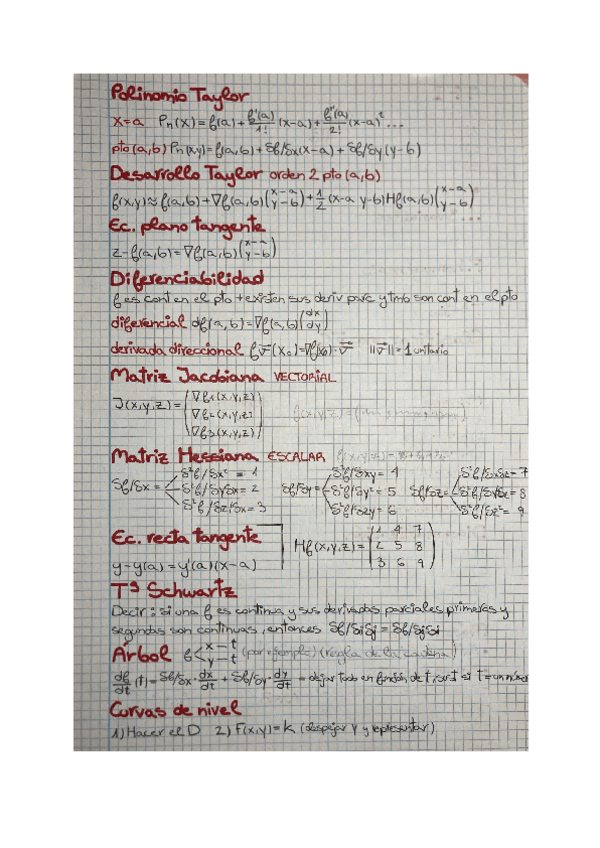 Polinomio Taylor
x=a Pn(x)=f(a)+f'(a)/1!(x-a)+f''(a)/2!(x-a)²...
pto(a,b) Pn(x,y)=f(a,b)+δf/δx(x-a)+δf/δy(y-b)
Desarrollo Taylor orden 2 pto(a,b)
f(x,y)≈f(a,b)+∇f(a,b)(x-a y-b)+1/2(x-a y-b)Hf(a,b)(x-a y-b)
Ec. plano tangente
z-f(a,b)=∇f(a,b)(x-a y-b)
Diferenciabilidad
f es cont en el pto + existen sus deriv parc y tmb son cont en el pto
diferencial df(a,b)=∇f(a,b)(dx dy)
derivada direccional f v⃗(x₀)=∇f(x₀)·v⃗ ||v⃗||=1 unitario
Matriz Jacobiana VECTORIAL
J(x,y,z)=(∇f1(x,y,z) ∇f2(x,y,z) ∇f3(x,y,z)) f(x,y,z)=
Matriz Hessiana ESCALAR f(x,y,z)=
δf/δx= δ²f/δx²=1 δ²f/δyδx=2 δ²f/δzδx=3
δf/δy= δ²f/δxy=4 δ²f/δy²=5 δ²f/δzy=6
δf/δz= δ²f/δxδz=7 δ²f/δyδz=8 δ²f/δz²=9
Ec. recta tangente
y-y(a)=y'(a)(x-a)
Hf(x,y,z)=
1 4 7
2 5 8
3 6 9
Tª Schwartz
Decir: si una f es continua y sus derivadas parciales primeras y
segundas son continuas, entonces δf/δiδj=δf/δjδi
Árbol f x-t y-t (por ejemplo) (regla de la cadena)
df/dt(t)=δf/δx·dx/dt+δf/δy·dy/dt = dejar todo en función de t, sust si t=un número
Curvas de nivel
1) Hacer el D 2) F(x,y)=K (despejar y y representar)